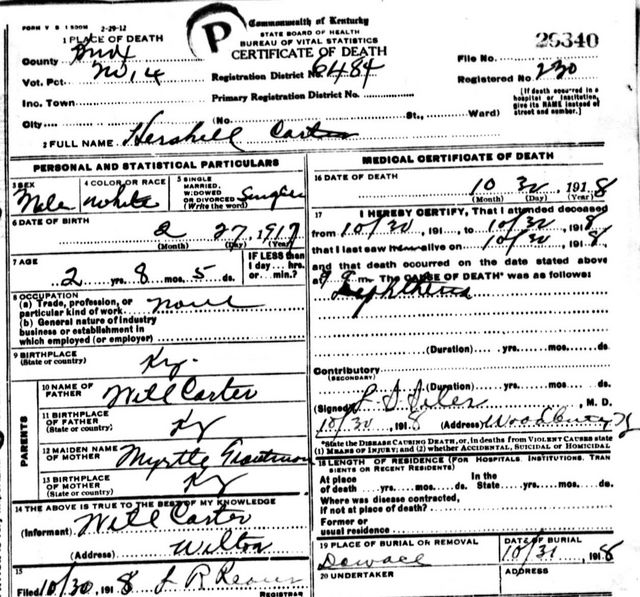 FORM V S 1 500M 2-29-12
P
Commonwealth of Kentucky
STATE BOARD OF HEALTH
BUREAU OF VITAL STATISTICS
CERTIFICATE OF DEATH
29340
1 PLACE OF DEATH
County Knox
Vot. Pct. No, 14
Inc. Town
City
Registration District No. 6484
Primary Registration District No.
File No.
Registered No. 230
(No. St., Ward)
[If death occurred in a hospital or institution, give its NAME instead of street and number.]
2 FULL NAME Hershell Carter
PERSONAL AND STATISTICAL PARTICULARS
3 SEX Male
4 COLOR OR RACE White
5 SINGLE, MARRIED, WIDOWED OR DIVORCED (Write the word) Single
6 DATE OF BIRTH
2 27, 191
(Month) (Day) (Year)
7 AGE
2 yrs. 8 mos. 5 ds.
IF LESS than 1 day... hrs. or min.?
8 OCCUPATION
(a) Trade, profession, or particular kind of work None
(b) General nature of industry business or establishment in which employed (or employer)
9 BIRTHPLACE (State or country) Ky.
PARENTS
10 NAME OF FATHER Will Carter
11 BIRTHPLACE OF FATHER (State or country) Ky
12 MAIDEN NAME OF MOTHER Myrtle
13 BIRTHPLACE OF MOTHER (State or country) Ky
14 THE ABOVE IS TRUE TO THE BEST OF MY KNOWLEDGE
(Informant) Will Carter
(Address) Wilton
15
Filed 10/30, 1918
REGISTRAR
MEDICAL CERTIFICATE OF DEATH
16 DATE OF DEATH
10 1918
(Month) (Day) (Year)
17 I HEREBY CERTIFY, That I attended deceased
from 10/30, 191, to 10/ , 1918
that I last saw h alive on 10/30, 1918
and that death occurred on the date stated above
at 9 m. The CAUSE OF DEATH* was as follows:
(Duration) yrs. mos. ds.
Contributory (SECONDARY)
(Duration) yrs. mos. ds.
(Signed) Siler M. D.
10/30, 1918 (Address) Woodbine Ky
*State the DISEASE CAUSING DEATH, or, in deaths from VIOLENT CAUSES state (1) MEANS OF INJURY; and (2) whether ACCIDENTAL, SUICIDAL OR HOMICIDAL
18 LENGTH OF RESIDENCE (FOR HOSPITALS, INSTITUTIONS, TRANSIENTS OR RECENT RESIDENTS)
At place of death yrs. mos. ds. In the State yrs. mos. ds.
Where was disease contracted, if not at place of death?
Former or usual residence
19 PLACE OF BURIAL OR REMOVAL
DATE OF BURIAL
10/31 1918
20 UNDERTAKER
ADDRESS